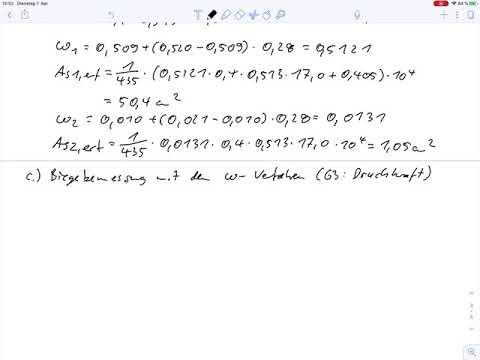 10:53 Dienstag 7. Apr.
ω1 = 0,509 + (0,520 - 0,509) · 0,28 = 0,5121
As1,erf = 1/435 · (0,5121 · 0,4 · 0,513 · 17,0 + 0,405) · 10⁴
= 50,4 cm²
ω2 = 0,010 + (0,021 - 0,010) · 0,28 = 0,0131
As2,erf = 1/435 · 0,0131 · 0,4 · 0,513 · 17,0 · 10⁴ = 1,05 cm²
c.) Biegebemessung mit dem ω-Verfahren (G3: Druckkraft)